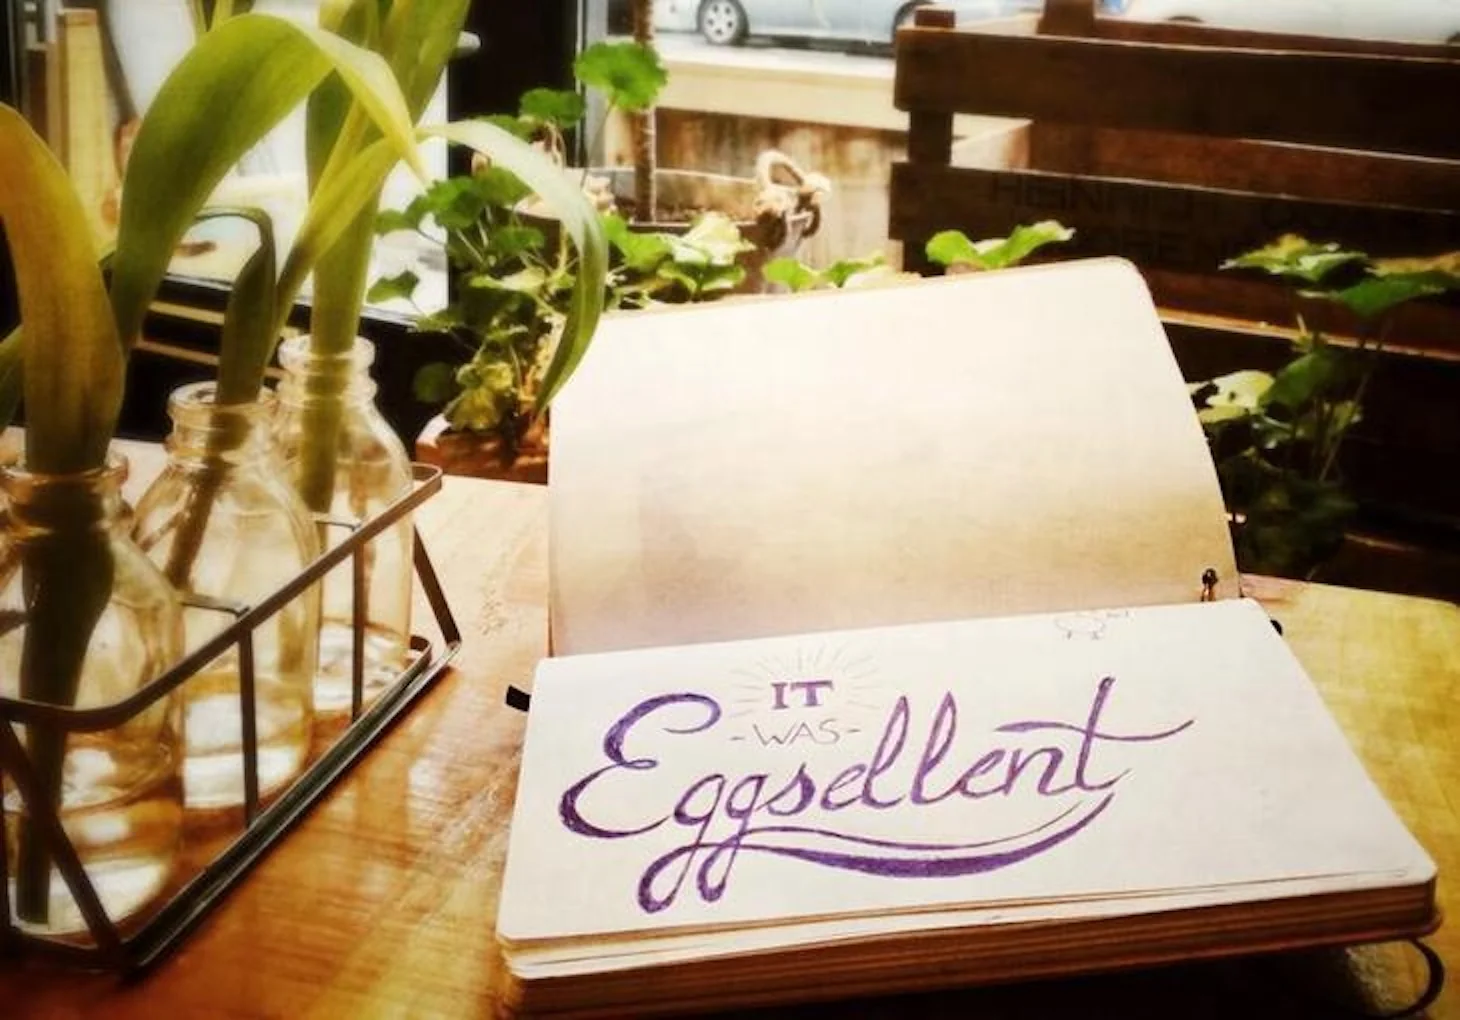 IT
-WAS-
Eggsellent